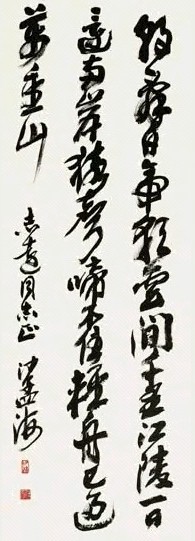 朝辭白帝彩雲間千里江陵一日
還兩岸猿聲啼不住輕舟已過
萬重山
志遠同志正 沙孟海